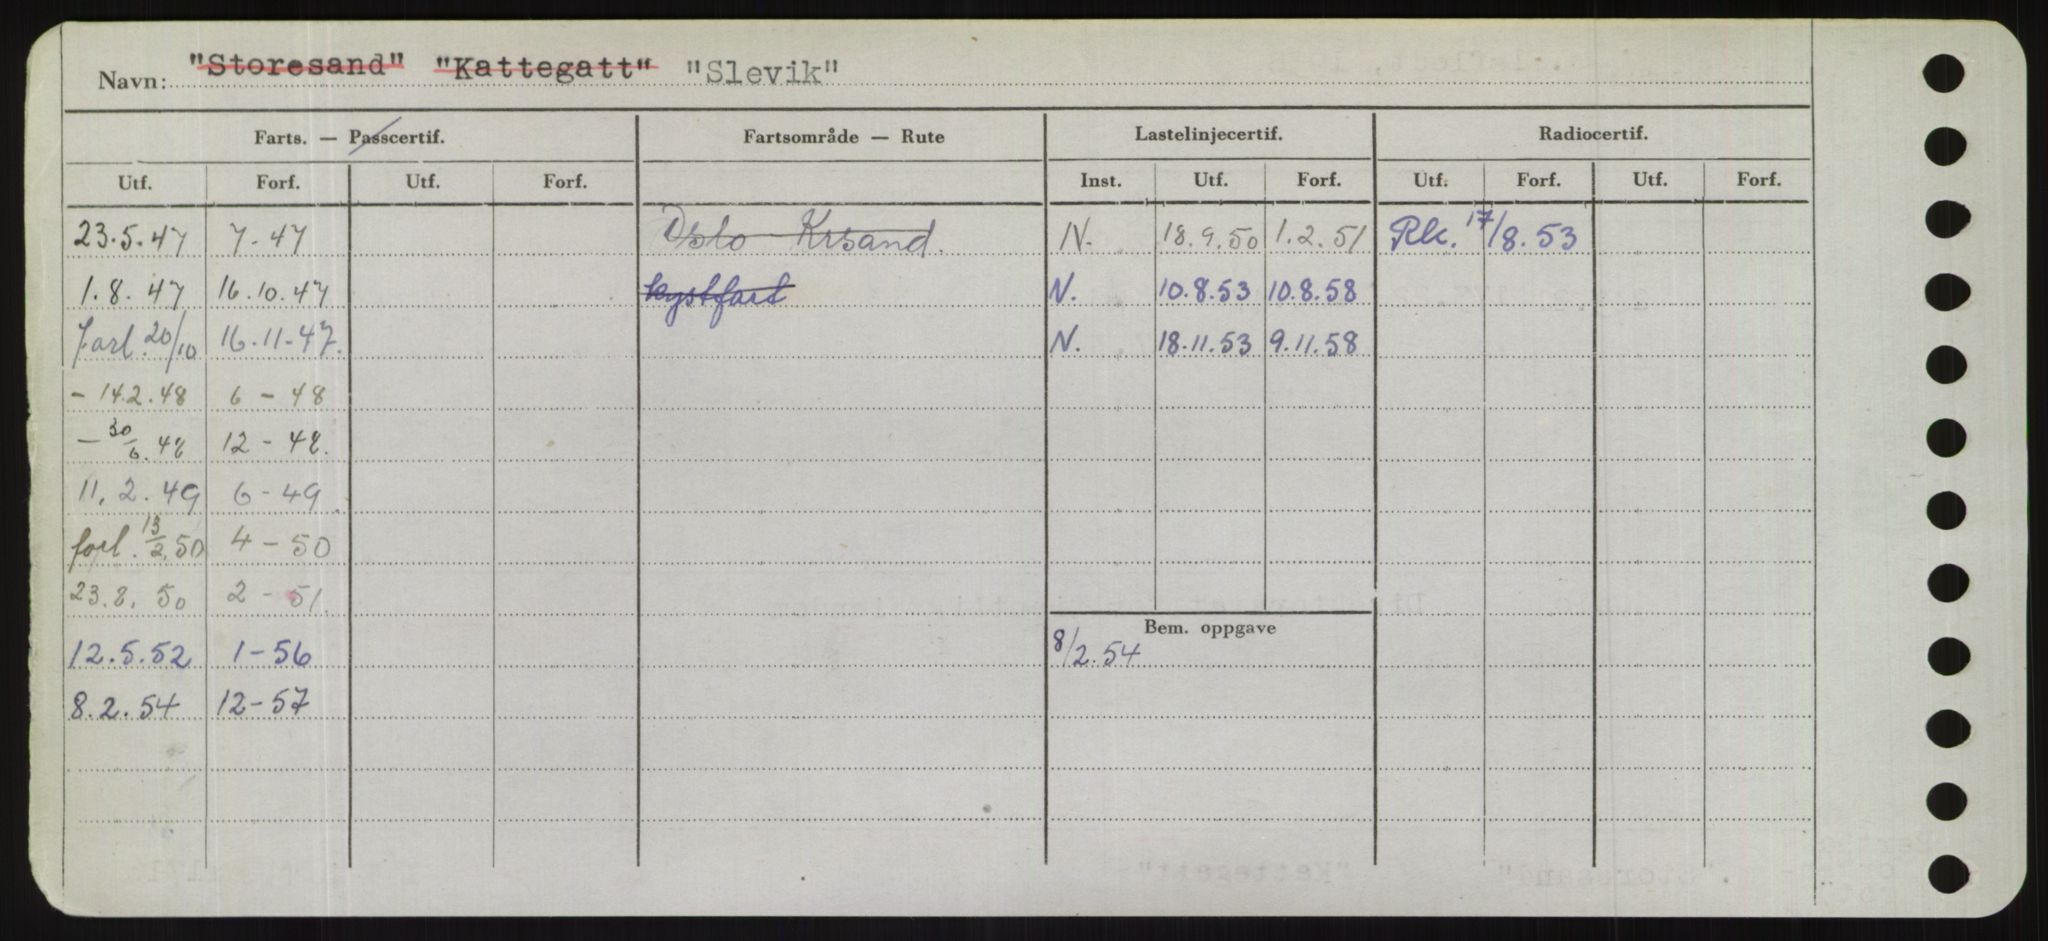 Navn: "Storesand" "Kattegatt" "Slevik"
Farts. — Passcertif. Fartsområde — Rute Lastelinjecertif. Radiocertif.
Utf. Forf. Utf. Forf. Inst. Utf. Forf. Utf. Forf. Utf. Forf.
23.5.47 7-47 Oslo - Krsand. N. 18.9.50 1.2.51 Rk. 17/8.53
1.8.47 16.10.47 kystfart N. 10.8.53 10.8.58
Forl. 20/10 16.11-47. N. 18.11.53 9.11.58
- 14.2.48 6 - 48
- 30/6.48 12 - 48.
11.2.49 6 - 49.
forl. 13/2.50 4 - 50
23.8.50 2 - 51.
Bem. oppgave
12.5.52 1-56 8/2.54
8.2.54 12-57